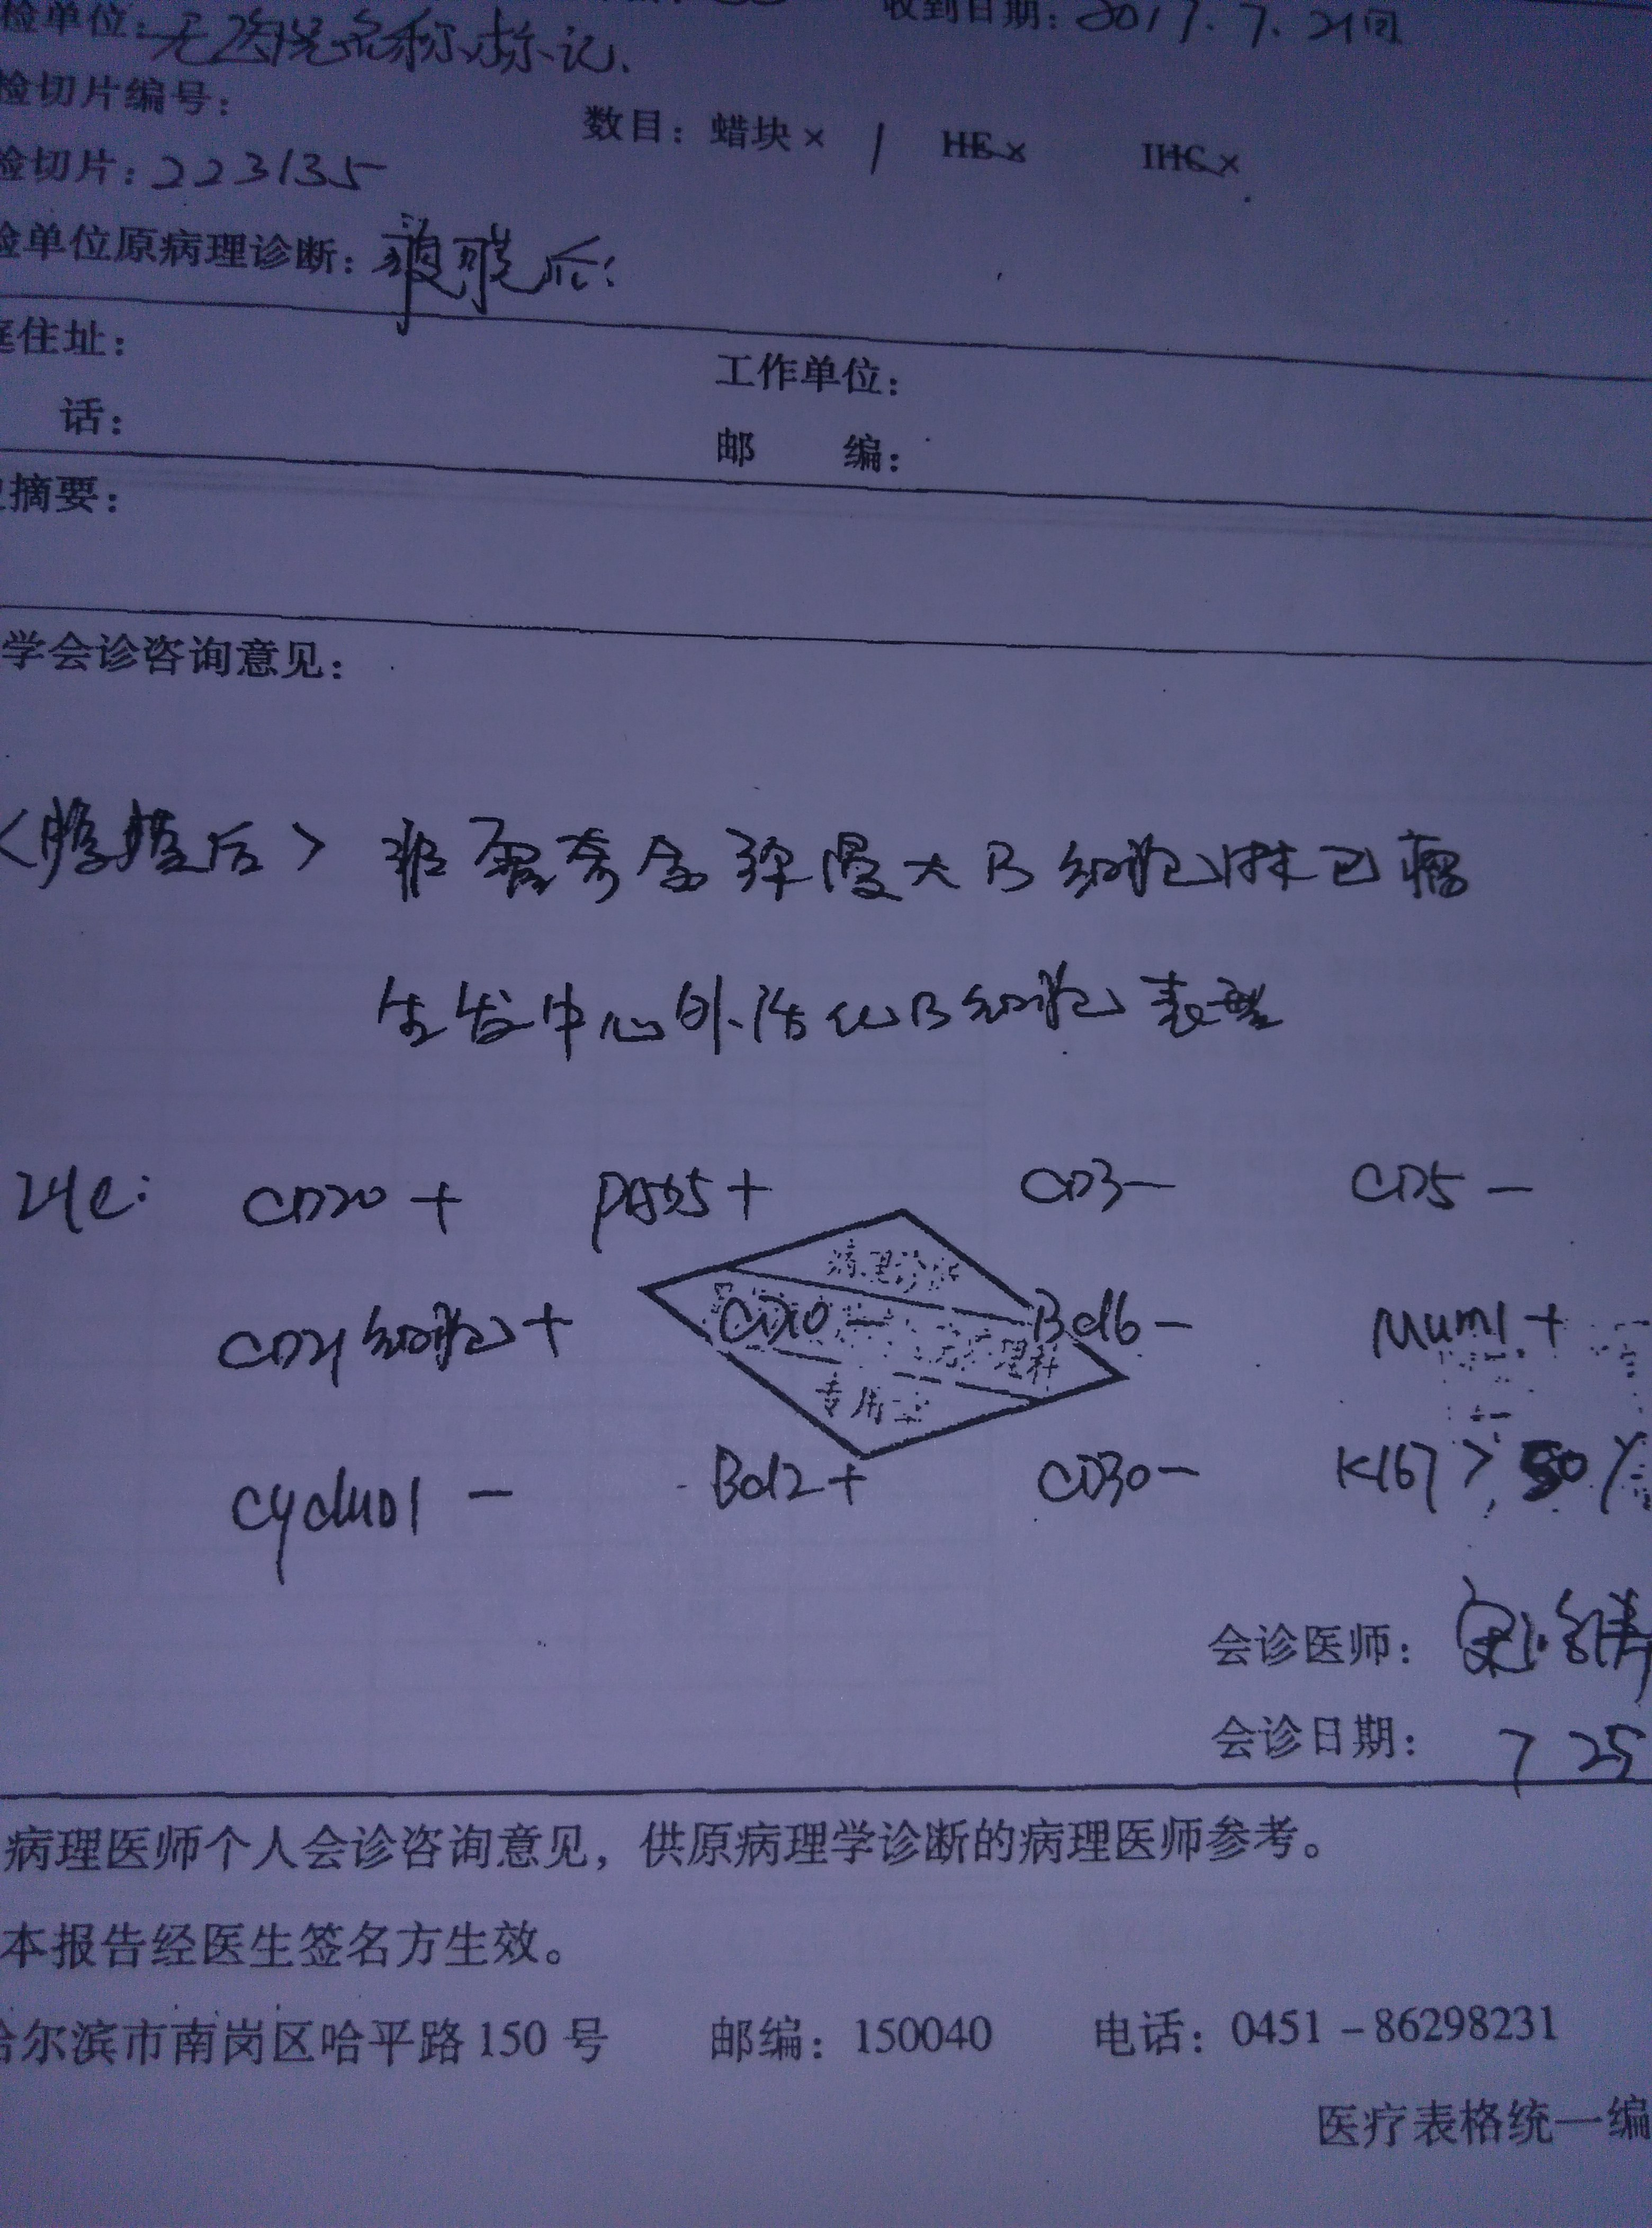 检单位：无医院名称、标记. 收到日期：2017.7.21日
检切片编号：
数目：蜡块× 1 HE× IHC×
检切片：223135
检单位原病理诊断：腹膜后：
庭住址： 工作单位：
话： 邮 编：
摘要：
学会诊咨询意见：
<腹膜后> 非霍奇金弥漫大B细胞淋巴瘤
生发中心外活化B细胞表型
IHC: CD20 + PAX5 + CD3 - CD5 -
病理诊断
CD21细胞+ CD10 - Bcl6 - Mum1 +
理科
专用章
cyclinD1 - Bcl2 + CD30 - Ki67 > 50%
会诊医师：
会诊日期： 7 25
病理医师个人会诊咨询意见，供原病理学诊断的病理医师参考。
本报告经医生签名方生效。
哈尔滨市南岗区哈平路150号 邮编：150040 电话：0451-86298231
医疗表格统一编